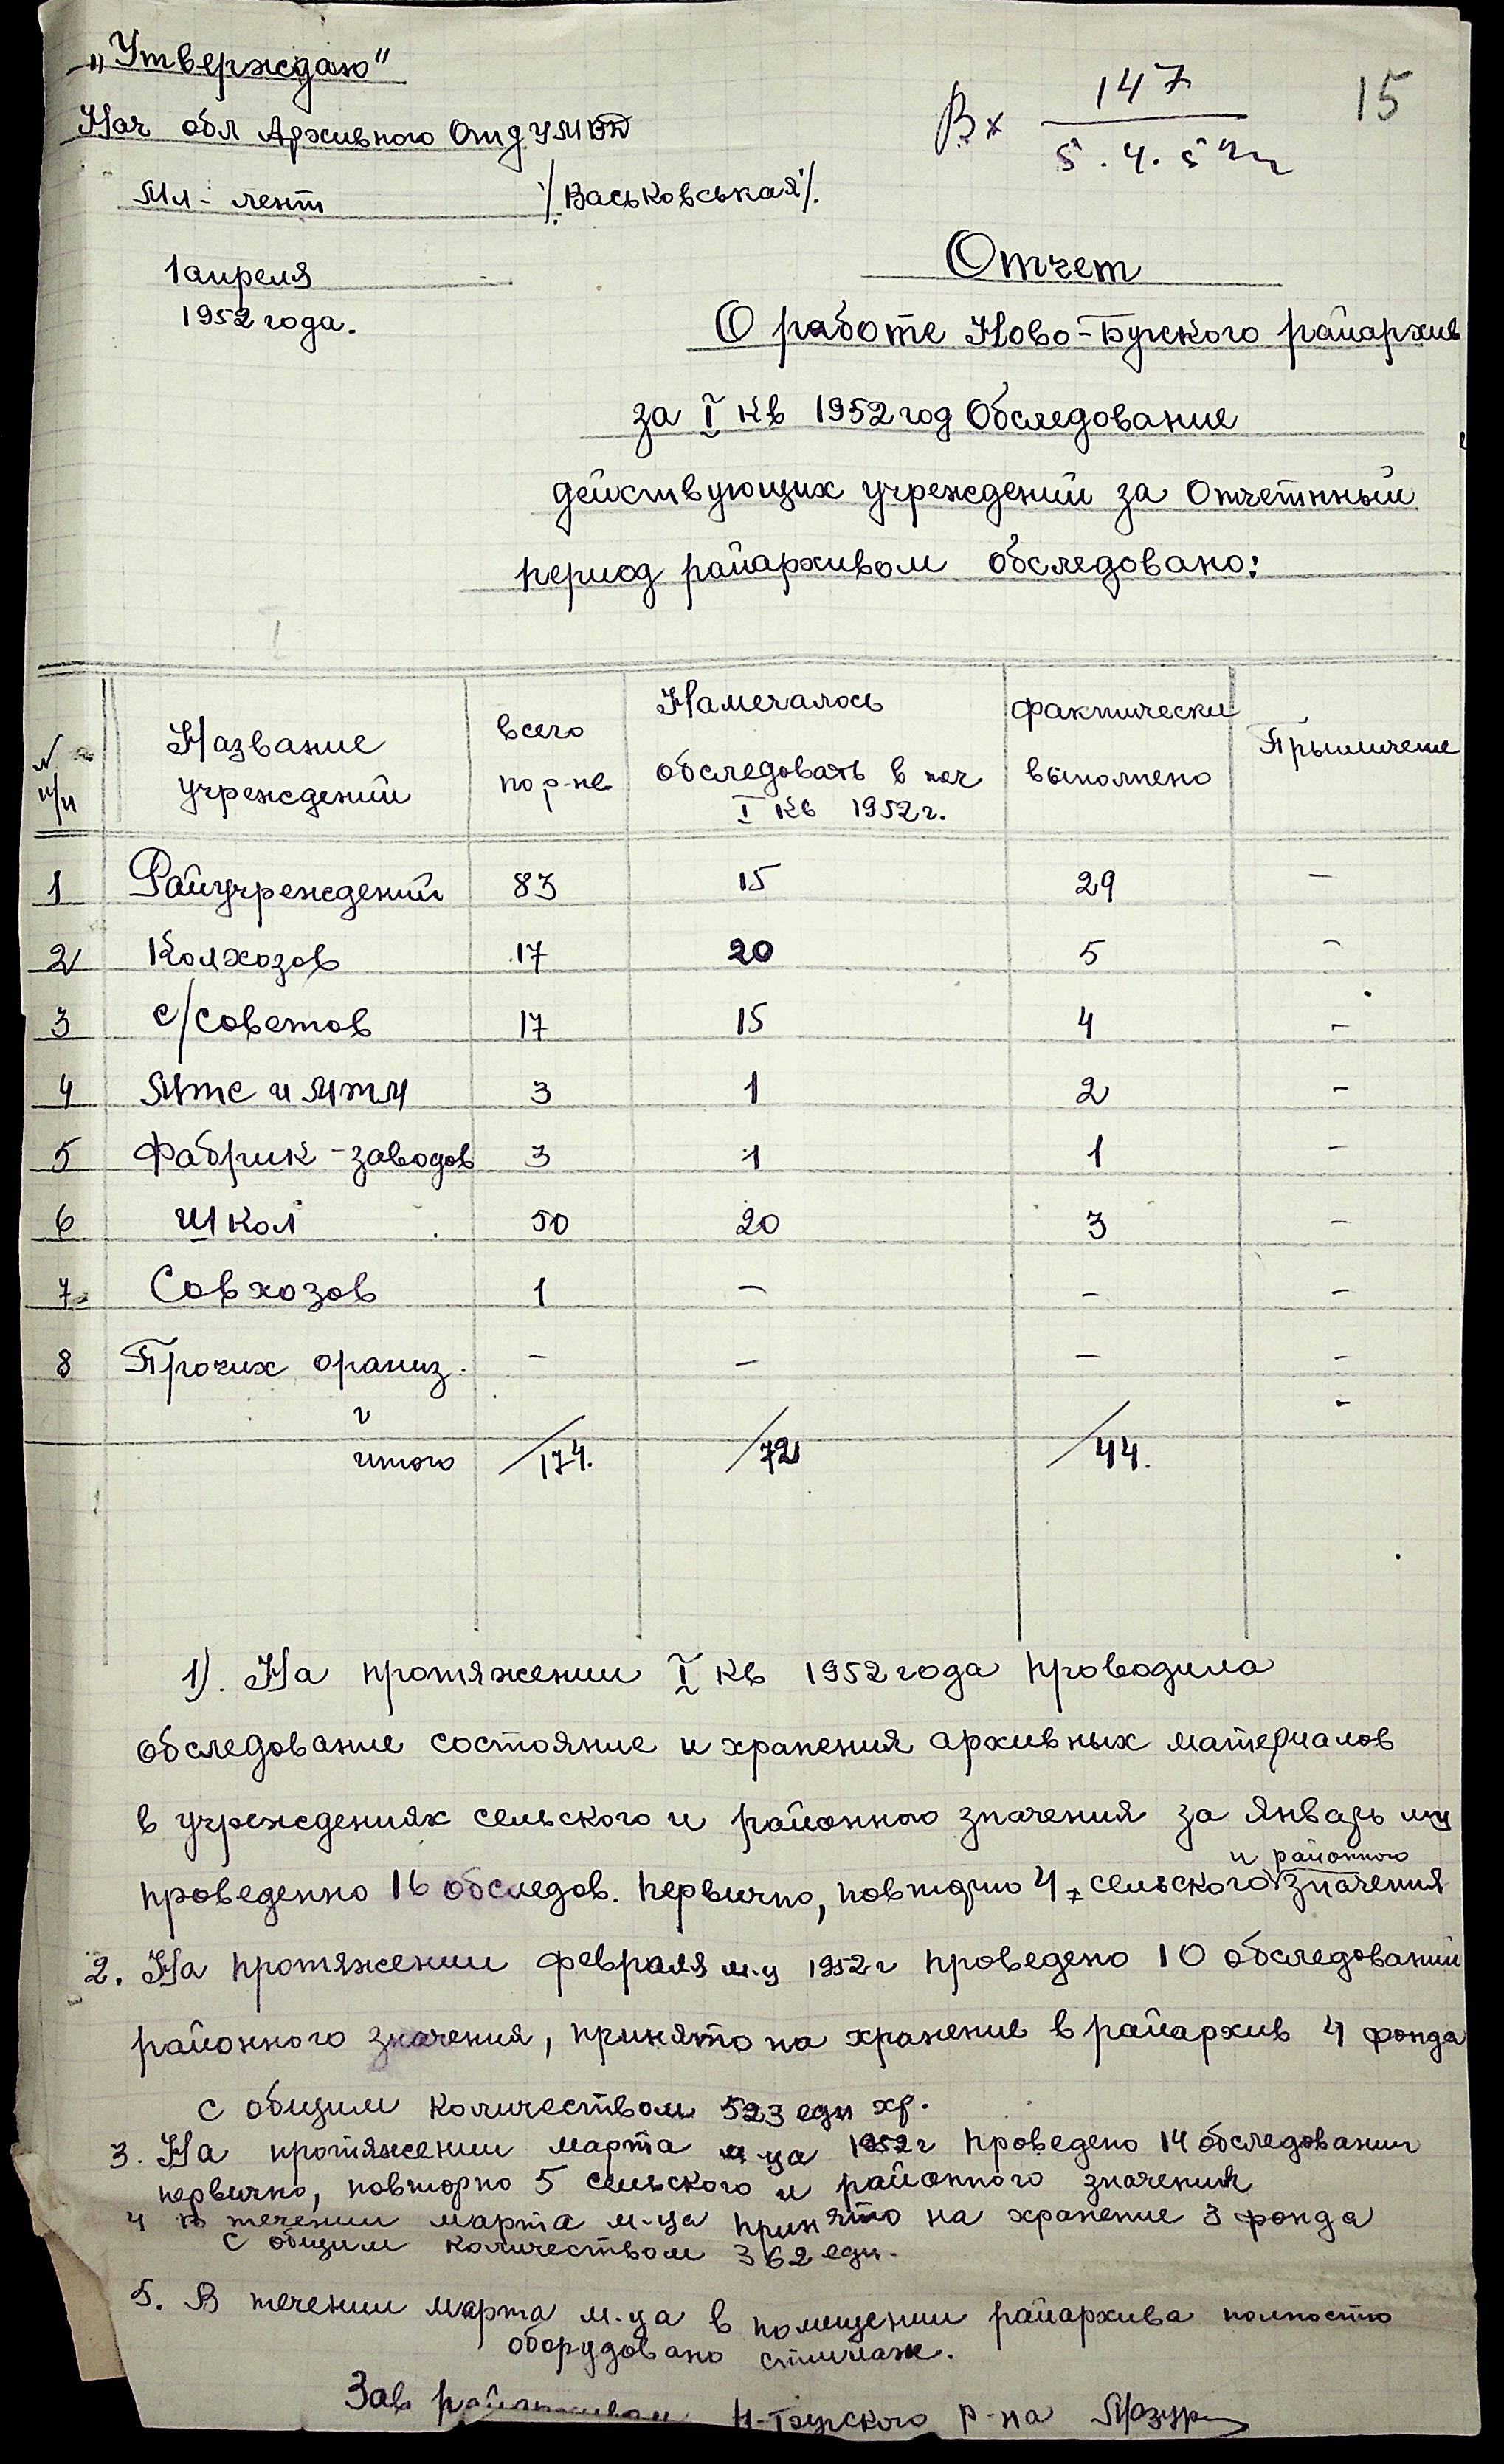 „Утверждаю"
Вх 147
5.4.52 г
15
Нач обл Архивного Отд УМВД
Мл-лент /Васьковськая/.
1 апреля
1952 года.
Отчет
О работе Ново-Бугского райархив
за I кв 1952 год Обследование
действующих учреждений за Отчетнный
период райархивом обследовано:
№ п/п Название учреждений всего по р-не Намечалось обследовать в I кв 1952 г. фактически выполнено
1 Райучреждений 83 15 29 –
2 Колхозов 17 20 5 –
3 с/советов 17 15 4 –
4 Мтс и Мтм 3 1 2 –
5 Фабрик-заводов 3 1 1 –
6 Школ 50 20 3 –
7. Совхозов 1 – – –
8 Прочих ораниз. – – – –
итого /174. /72 /44.
1). На протяжении I кв 1952 года проводила
обследование состояние и хранения архивных материалов
в учреждениях сельского и районного значения за январь м-ц
проведенно 16 обследов. первично, повторно 4 сельского и районного значения
2. На протяжении февраля м-ц 1952 г проведено 10 обследований
районного значения, принято на хранение в райархив 4 фонда
с общим количеством 523 едн хр.
3. На протяжении марта м-ца 1952 г проведено 14 обследований
первично, повторно 5 сельского и районного значения
4 в течении марта м-ца принято на хранение 3 фонда
с общим количеством 362 едн.
5. В течении марта м-ца в помещении райархива полностю
оборудовано
Зав райархивом Н-Бугского р-на